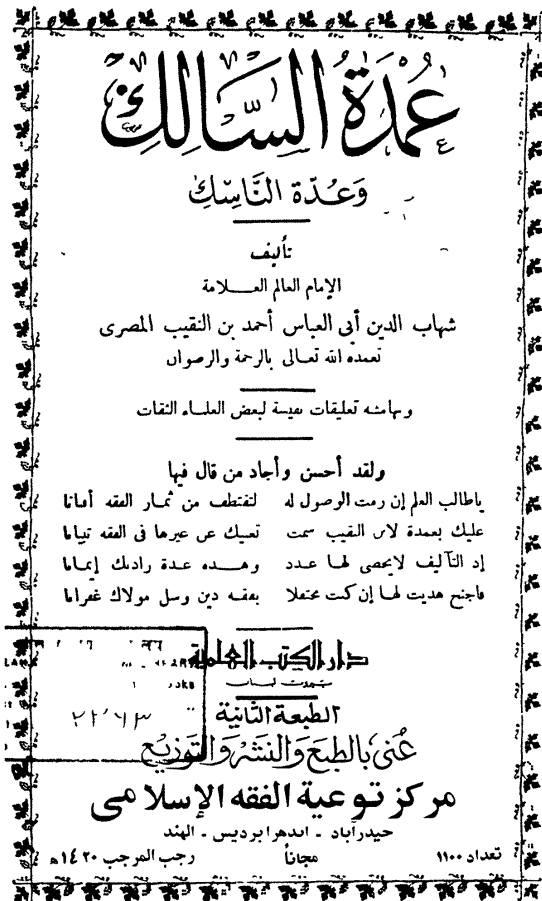 عُمْدَةُ السَّالِك
وَعُدّة النَّاسِك
تأليف
الإمام العالم العـــلامة
شهاب الدين أبى العباس أحمد بن النقيب المصرى
تغمده الله تعالى بالرحمة والرضوان
وبهامشه تعليقات نفيسة لبعض العلماء الثقات
ولقد أحسن وأجاد من قال فيها
ياطالب العلم إن رمت الوصول له لتقتطف من ثمار الفقه أفنانا
عليك بعمدة لابن النقيب سمت تغنيك عن غيرها فى الفقه تبيانا
إن التآليف لايحصى لها عدد وهذه عدة زادتك إيمانا
فاجنح هديت لها إن كنت محتفلا بفقه دين وسل مولاك غفرانا
دار الكتب العلمية
بيروت لبنان
الطبعة الثانية
عُنى بالطبع والنشر والتوزيع
مركز توعية الفقه الإسلامى
حيدرآباد - اندهرا برديس - الهند
تعداد ١١٠٠ مجاناً رجب المرجب ١٤٢٠ھ